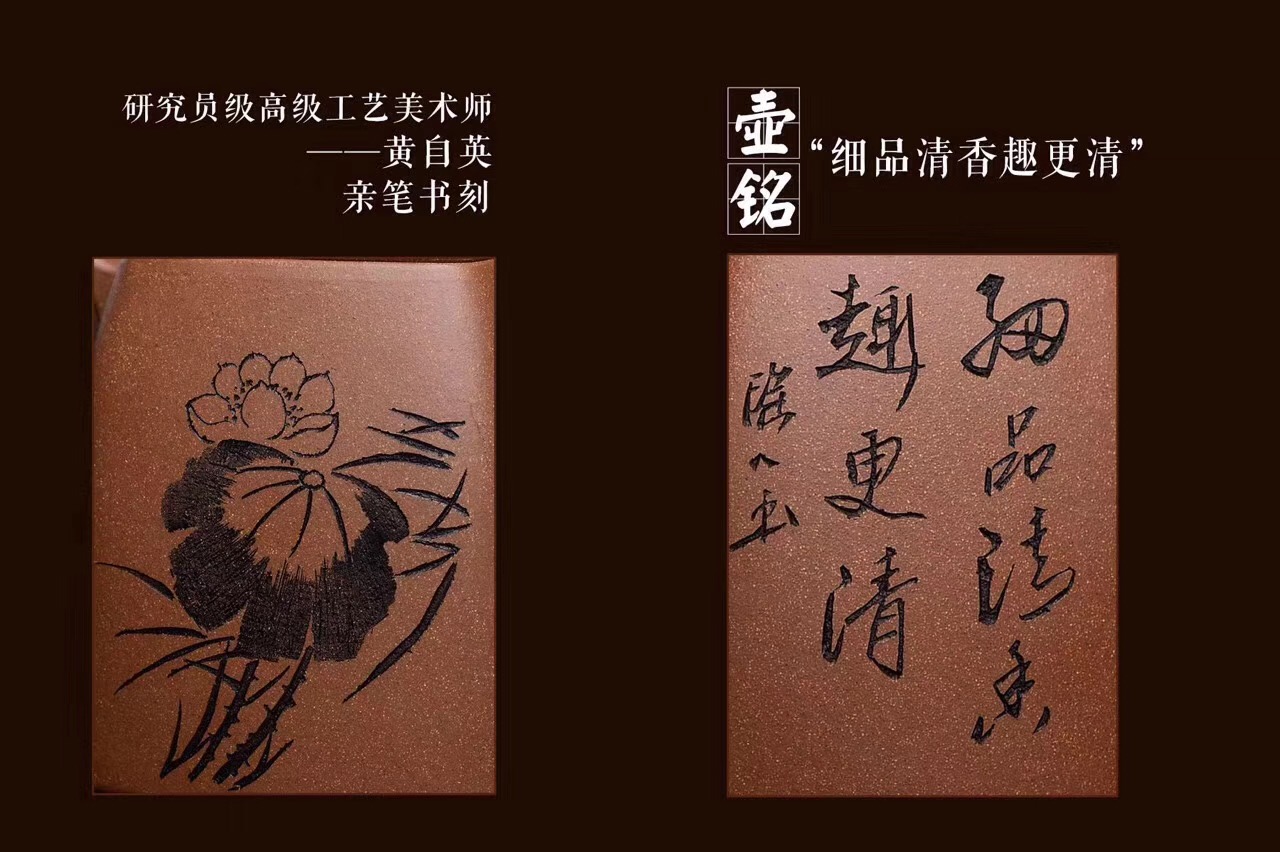 研究员级高级工艺美术师
——黄自英
亲笔书刻
壶铭
“细品清香趣更清”
细品清香
趣更清